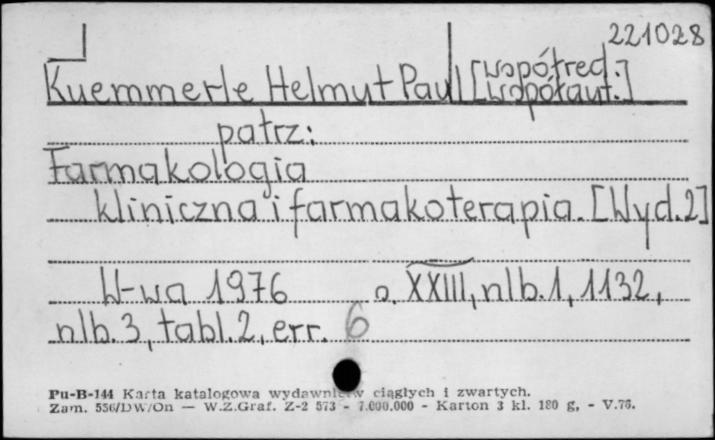 221028
Kuemmerle Helmut Paul [współred.;
współaut.]
patrz:
Farmakologia
kliniczna i farmakoterapia. [Wyd.2]
W-wa 1976 o. XXIII, nlb.1, 1132,
nlb.3, tabl.2, err. 6
Pu-B-144 Karta katalogowa wydawnictw ciągłych i zwartych.
Zam. 556/DW/On — W.Z.Graf. Z-2 573 - 7.000.000 - Karton 3 kl. 180 g, - V.76.